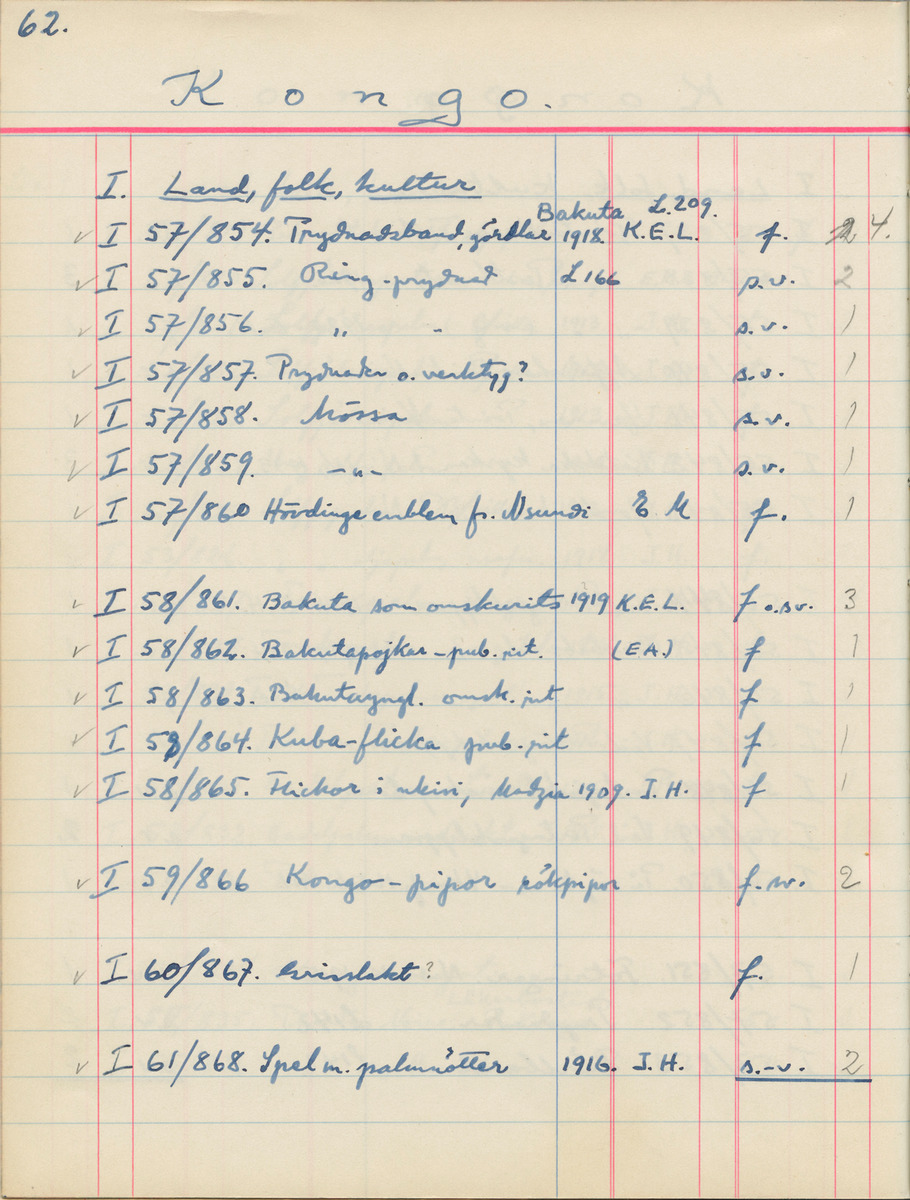 62.
Kongo.
I. Land, folk, kultur
Bakuta L.209.
✓ I 57/854. Prydnadsband, gördlar 1918. K.E.L. f. 2 4.
✓ I 57/855. Ring-prydnad L 166 s.v. 2
✓ I 57/856. " - s.v. 1
✓ I 57/857. Prydnader o. verktyg? s.v. 1
✓ I 57/858. Mössa s.v. 1
✓ I 57/859. -"- s.v. 1
✓ I 57/860 Hövdingeemblem fr. Nsundi E M f. 1
✓ I 58/861. Bakuta som omskurits 1919 K.E.L. f o.sv. 3
✓ I 58/862. Bakutapojkar - pub. rit. (E.A.) f 1
✓ I 58/863. Bakutayngl. omsk. rit f 1
✓ I 58/864. Kuba-flicka pub. rit f 1
✓ I 58/865. Flickor i nkisi, Madzia 1909. I.H. f 1
✓ I 59/866 Kongo-pipor rökpipor f.sv. 2
✓ I 60/867. Grisslakt? f. 1
✓ I 61/868. Spel m. palmnötter 1916. I.H. s.-v. 2